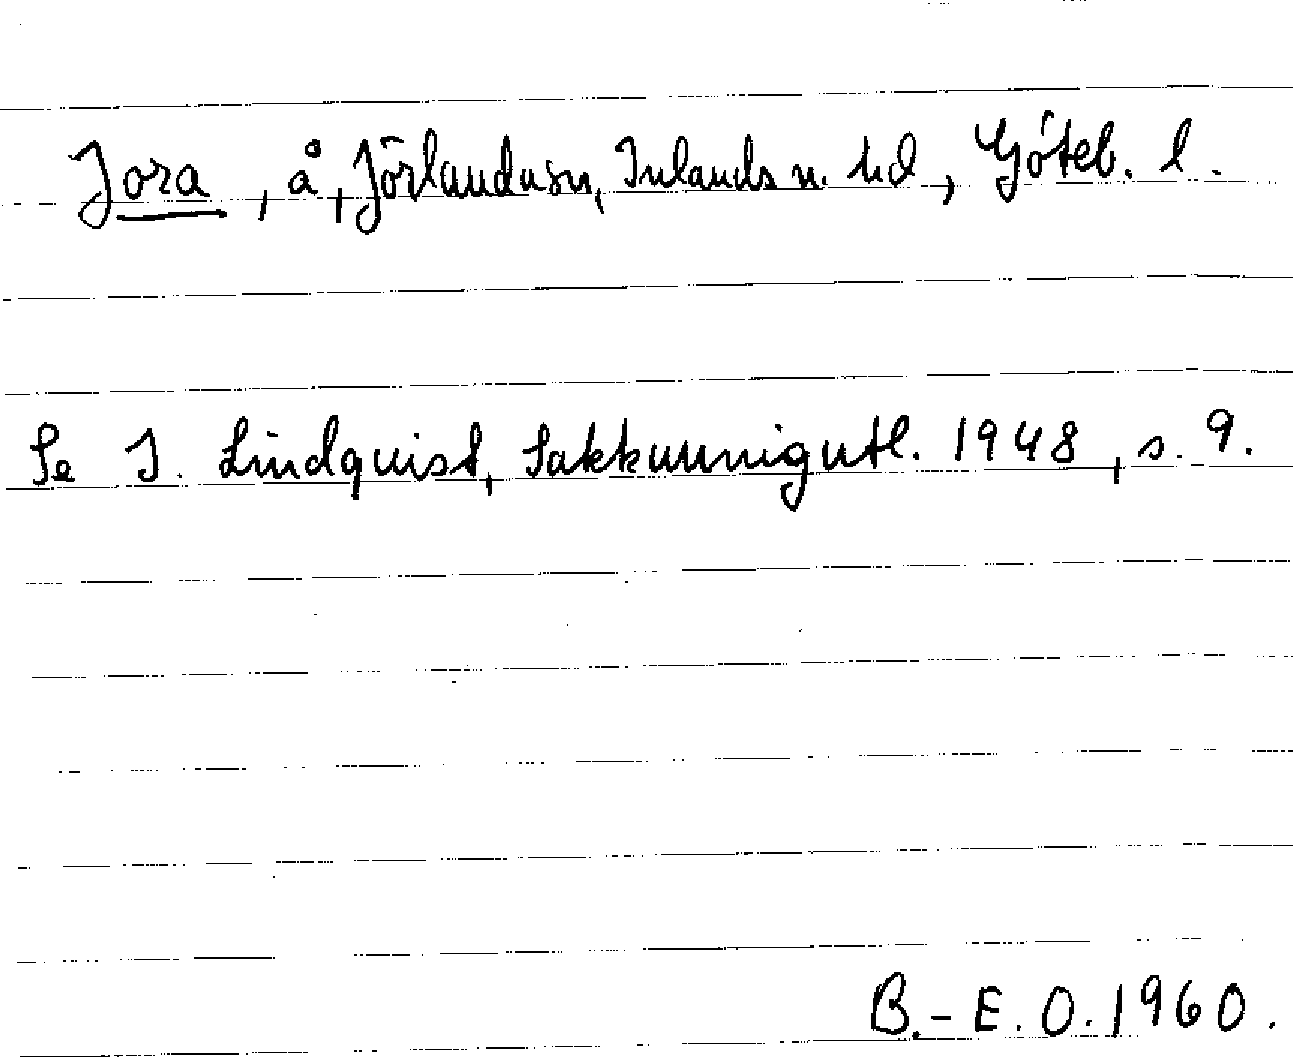 Jora, å, Jörlanda sn, Inlands n. hd, Göteb. l.
Se I. Lindquist, Sakkunnigutl. 1948, s. 9.
B.-E. O. 1960.